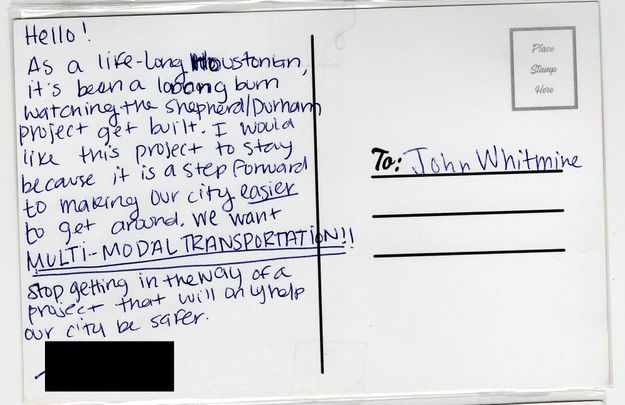 Hello!
As a life-long Houstonian,
it's been a looong burn
watching the Shepherd/Durham
project get built. I would
like this project to stay
because it is a step forward
to making our city easier
to get around. We want
MULTI-MODAL TRANSPORTATION!!
Stop getting in the way of a
project that will only help
our city be safer.
Place
Stamp
Here
To: John Whitmire